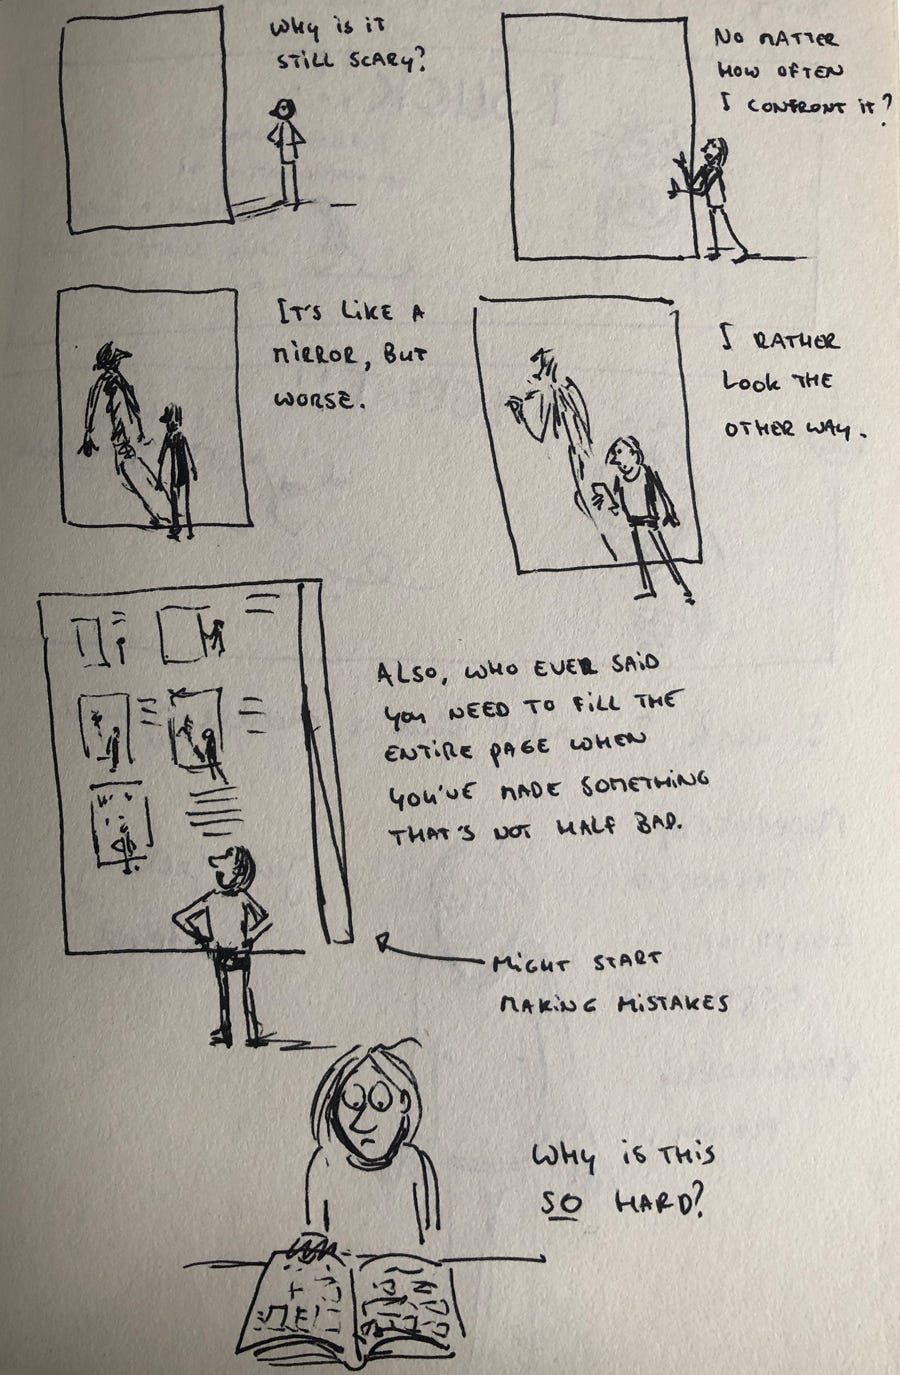 WHY IS IT
STILL SCARY?
NO MATTER
HOW OFTEN
I CONFRONT IT?
IT'S LIKE A
MIRROR, BUT
WORSE.
I RATHER
LOOK THE
OTHER WAY.
ALSO, WHO EVER SAID
YOU NEED TO FILL THE
ENTIRE PAGE WHEN
YOU'VE MADE SOMETHING
THAT'S NOT HALF BAD.
MIGHT START
MAKING MISTAKES
WHY IS THIS
SO HARD?